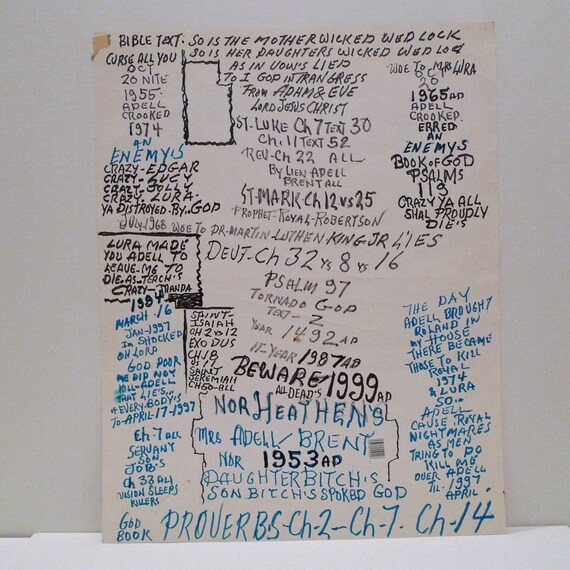 BIBLE TEXT. SO IS THE MOTHER WICKED WED LOCK
SO IS HER DAUGHTERS WICKED WED LOC
AS IN VOW'S LIED
TO I GOD IN TRANGRESS
FROM ADAM & EVE
LORD JESUS CHRIST
ST-LUKE Ch 7 TEXT 30
Ch. 11 TEXT 52
REV-Ch 22 ALL
BY LIEN ADELL
BRENT ALL
ST-MARK-Ch 12 VS 25
PROPHET-ROYAL-ROBERTSON
CURSE ALL YOU
OCT
20 NITE
1955-
ADELL
CROOKED
1974
AN
ENEMYS
CRAZY-EDGAR
CRAZY-LUCY
CRAZY-JOLLY
CRAZY. LURA.
YA DISTROYED. BY. GOD
WOE TO MRS LURA
OCT
20
1965 AD
ADELL
CROOKED
ERRED.
AN
ENEMYS
BOOK OF GOD
PSALMS
113
CRAZY YA ALL
SHAL PROUDLY
DIE'S
JULY-1968 WOE TO DR-MARTIN LUTHEN KING JR LIES
DEUT-Ch 32 VS 8 VS 16
PSALM 97
TORNADO GOD
TEXT-2
YEAR 1492 AD
IT-YEAR 1987 AD
BEWARE 1999 AD
ALL DEAD'S
LURA MADE
YOU ADELL TO
LEAVE-ME TO
DIE. AS. TEACH'S
CRAZY-
1984
MARCH. 16
JAN-1997
IN SHOCKED
OH LORD
GOD POOR
ME DID NOT
KILL-ADELL
THAT LIES...
& EVERY.BODY'S
TO-APRIL-17-1997
Ch-7 ALL
SERVANT
SON
JOB'S
Ch 33 ALL
VISION SLEEPS
KILLERS
SAINT-
ISAIAH
CH 2 VS 12
EXO DUS
CH. 18
VS 17
SAINT
JEREMIAH
CH 50-ALL
NOR HEATHEN'S
MRS ADELL BRENT
NOR 1953 AD
DAUGHTER BITCH'S
SON BITCH'S SPOKED GOD
THE DAY
ADELL BROUGHT
ROLAND IN
MY HOUSE
THERE BECAME
THOSE TO KILL
ROYAL
1974
& LURA
SO...
ADELL
CAUSE ROYAL
NIGHTMARES
AS MEN
TRING TO DO
KILL ME
OVER ADELL
TIL. 1997
APRIL.
GOD
BOOK
PROVERBS-Ch-2-Ch-7. Ch-14